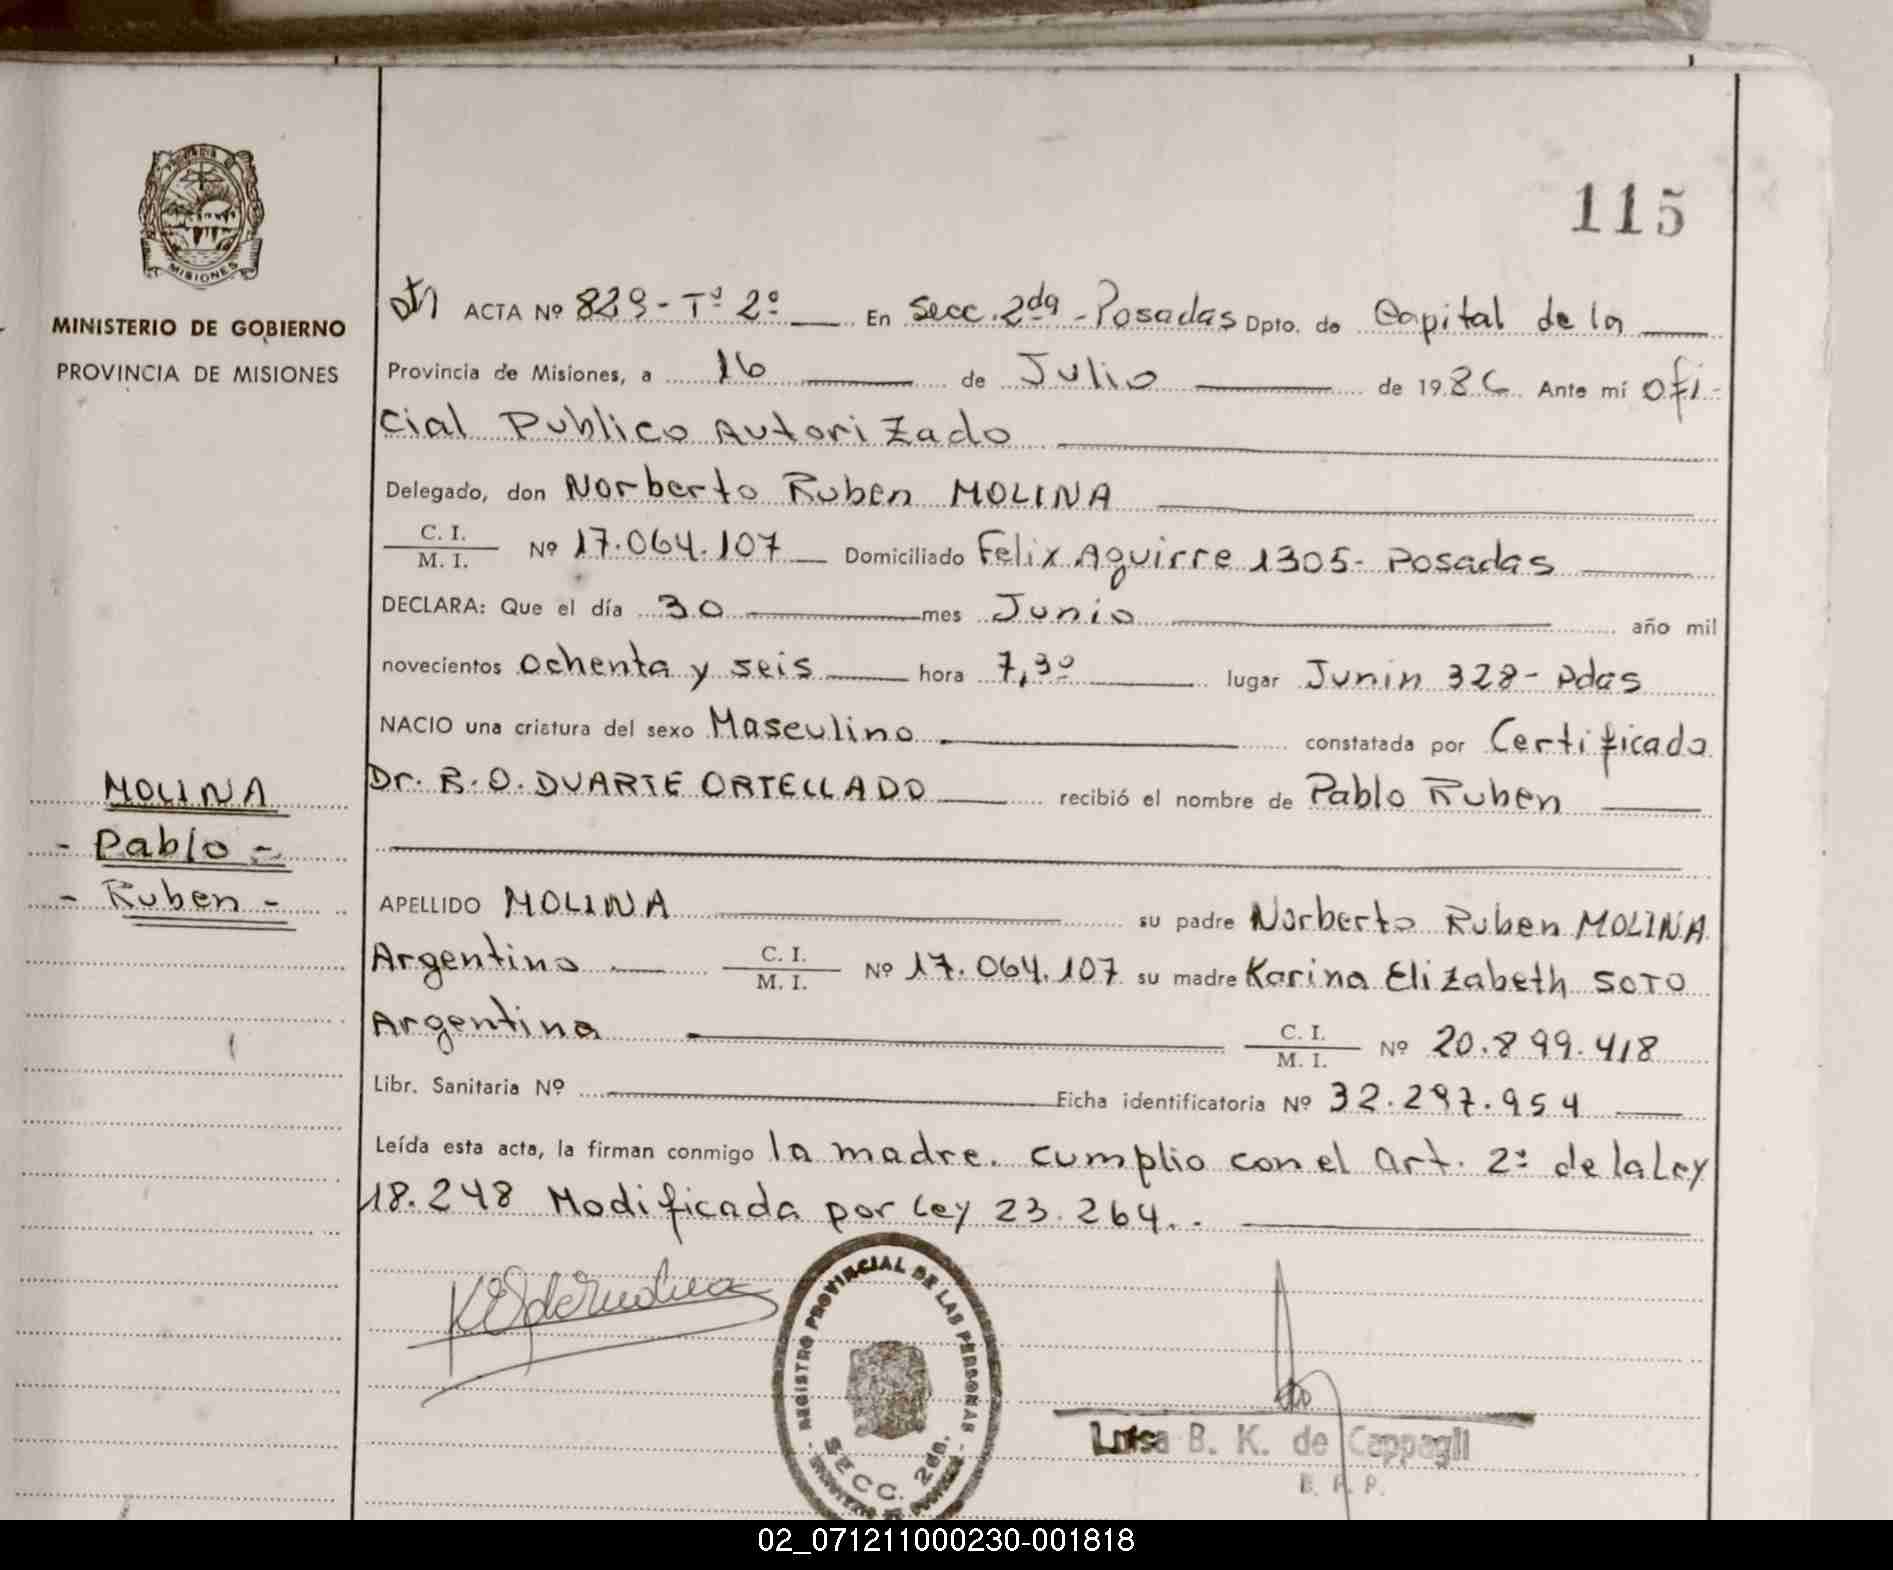 115
PROVINCIA DE
MISIONES
MINISTERIO DE GOBIERNO
PROVINCIA DE MISIONES
ACTA Nº 829 - Tº 2º En Secc. 2da - Posadas Dpto. de Capital de la
Provincia de Misiones, a 16 de Julio de 1986. Ante mí ofi-
cial Publico Autorizado
Delegado, don Norberto Ruben MOLINA
C. I.
M. I. Nº 17.064.107 Domiciliado Felix Aguirre 1305 - Posadas
DECLARA: Que el día 30 mes Junio año mil
novecientos ochenta y seis hora 7,30 lugar Junin 328 - Pdas
NACIO una criatura del sexo Masculino constatada por Certificado
Dr. R. O. DUARTE ORTELLADO recibió el nombre de Pablo Ruben
MOLINA
- Pablo -
- Ruben -
APELLIDO MOLINA su padre Norberto Ruben MOLINA
Argentino C. I. M. I. Nº 17.064.107 su madre Karina Elizabeth SOTO
Argentina C. I. M. I. Nº 20.899.418
Libr. Sanitaria Nº Ficha identificatoria Nº 32.297.954
Leída esta acta, la firman conmigo la madre. cumplio con el Art. 2º de la Ley
18.248 Modificada por Ley 23.264..
REGISTRO PROVINCIAL DE LAS PERSONAS
SECC. 2da.
Luisa B. K. de Cappagli
02_071211000230-001818